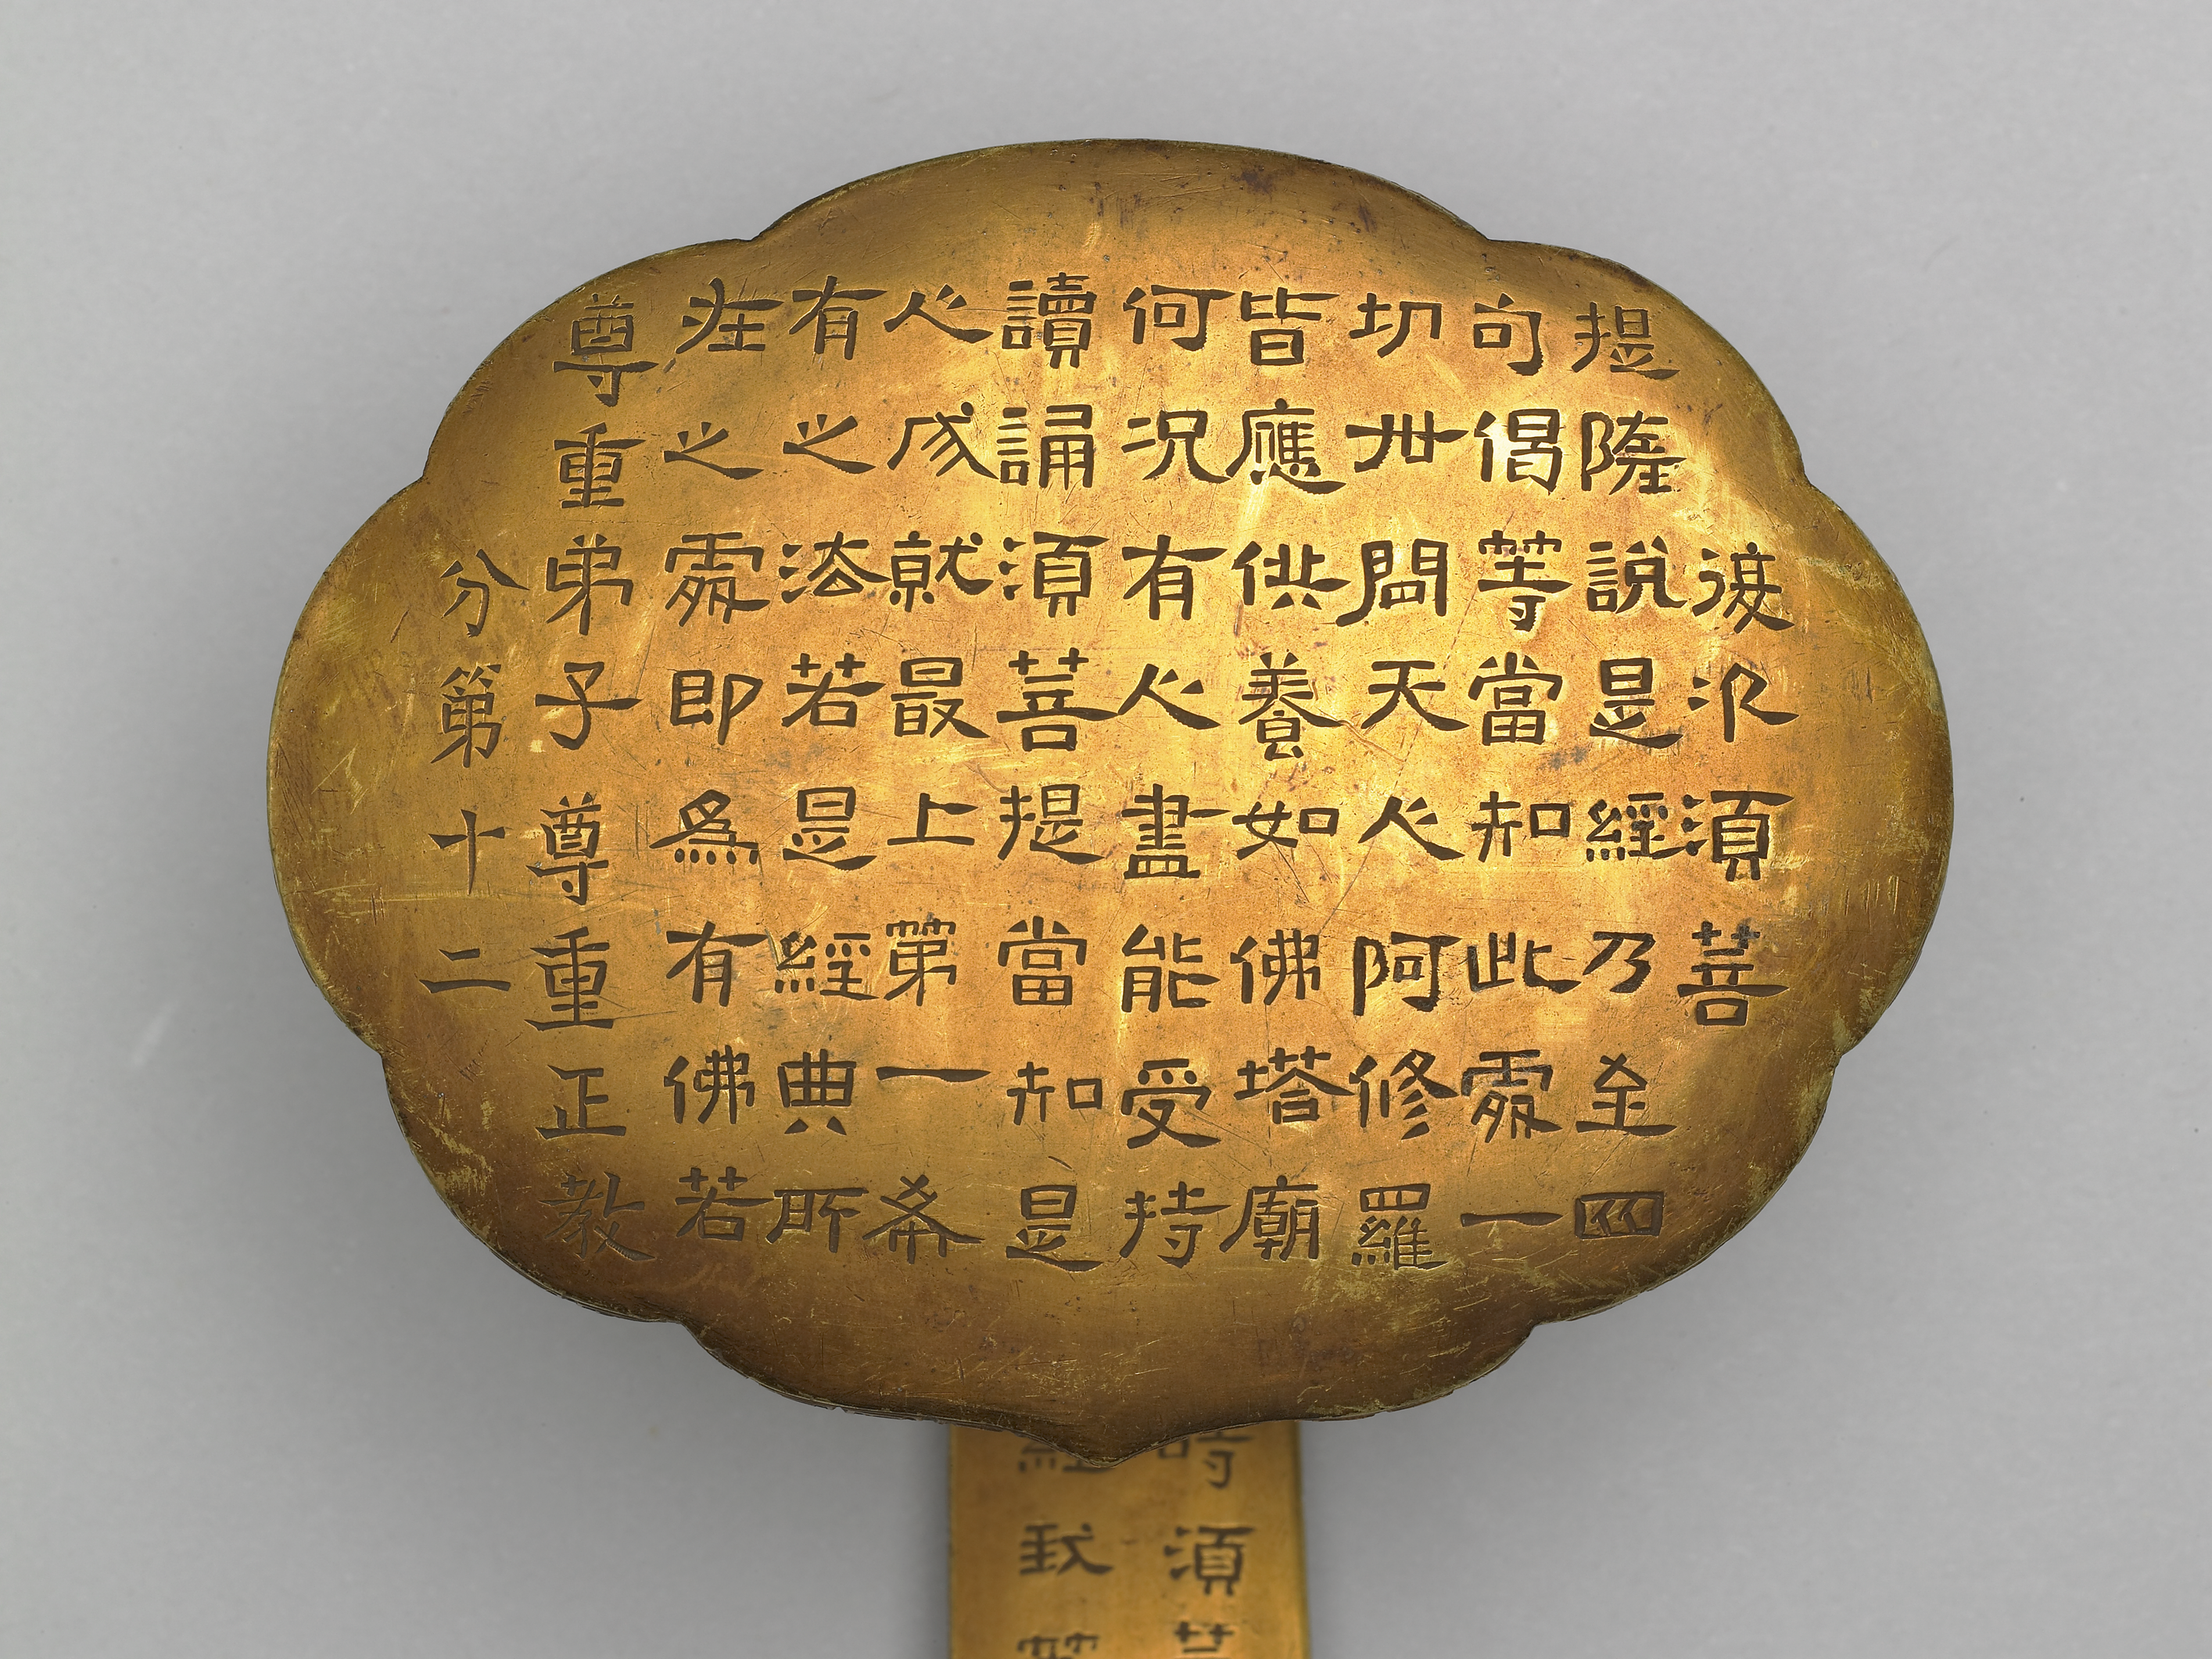 復次須菩
提隨說是經乃至四
句偈等當知此處一
切世間天人阿修羅
皆應供養如佛塔廟
何況有人盡能受持
讀誦須菩提當知是
人成就最上第一希
有之法若是經典所
在之處即爲有佛若
尊重弟子尊重正教
分第十二
時須菩
經我等